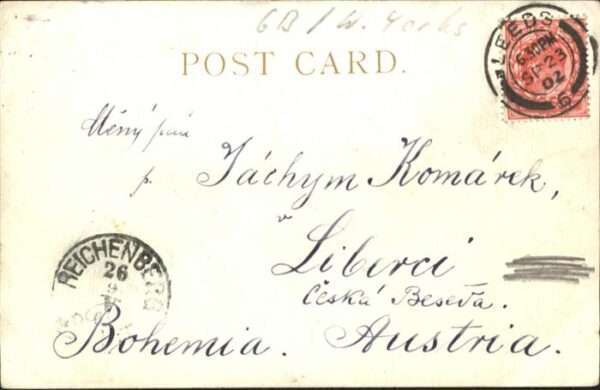 GB / W. Yorks
POST CARD.
LEEDS
6.30 PM
SP 23
02
6
p. Jáchym Komárek,
v
Liberci
Česká Beseda.
REICHENBERG
26
9
Bohemia. Austria.